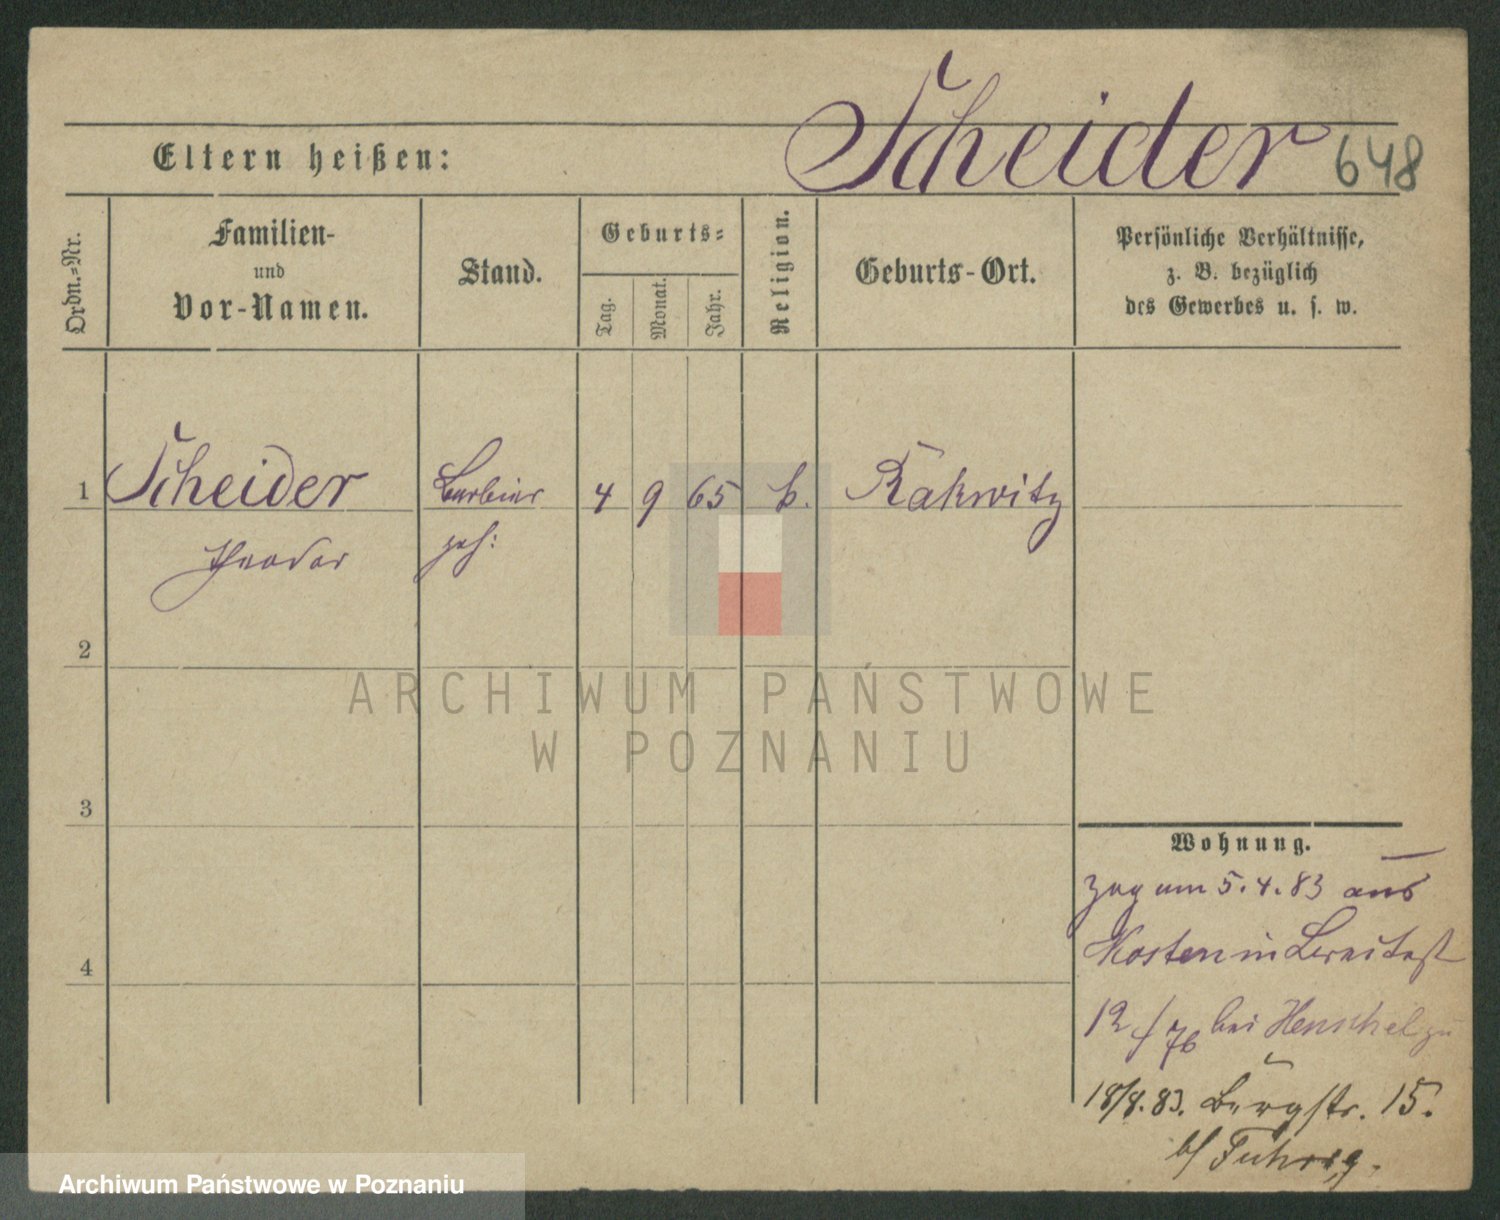 Scheider 648
Eltern heißen:
Ordn.=Nr.
Familien-
und
Vor-Namen.
Stand.
Geburts=
Tag.
Monat.
Jahr.
Religion.
Geburts-Ort.
Persönliche Verhältnisse,
z. B. bezüglich
des Gewerbes u. s. w.
1 Scheider Barbier 4 9 65 k. Rakwitz
Theodor geh:
2
3
4
Wohnung.
zog am 5.4.83 aus
Kosten in Breitest
12/76 bei Henschel zu
18/8.83. Bergstr. 15.
b/
ARCHIWUM PAŃSTWOWE
W POZNANIU
Archiwum Państwowe w Poznaniu